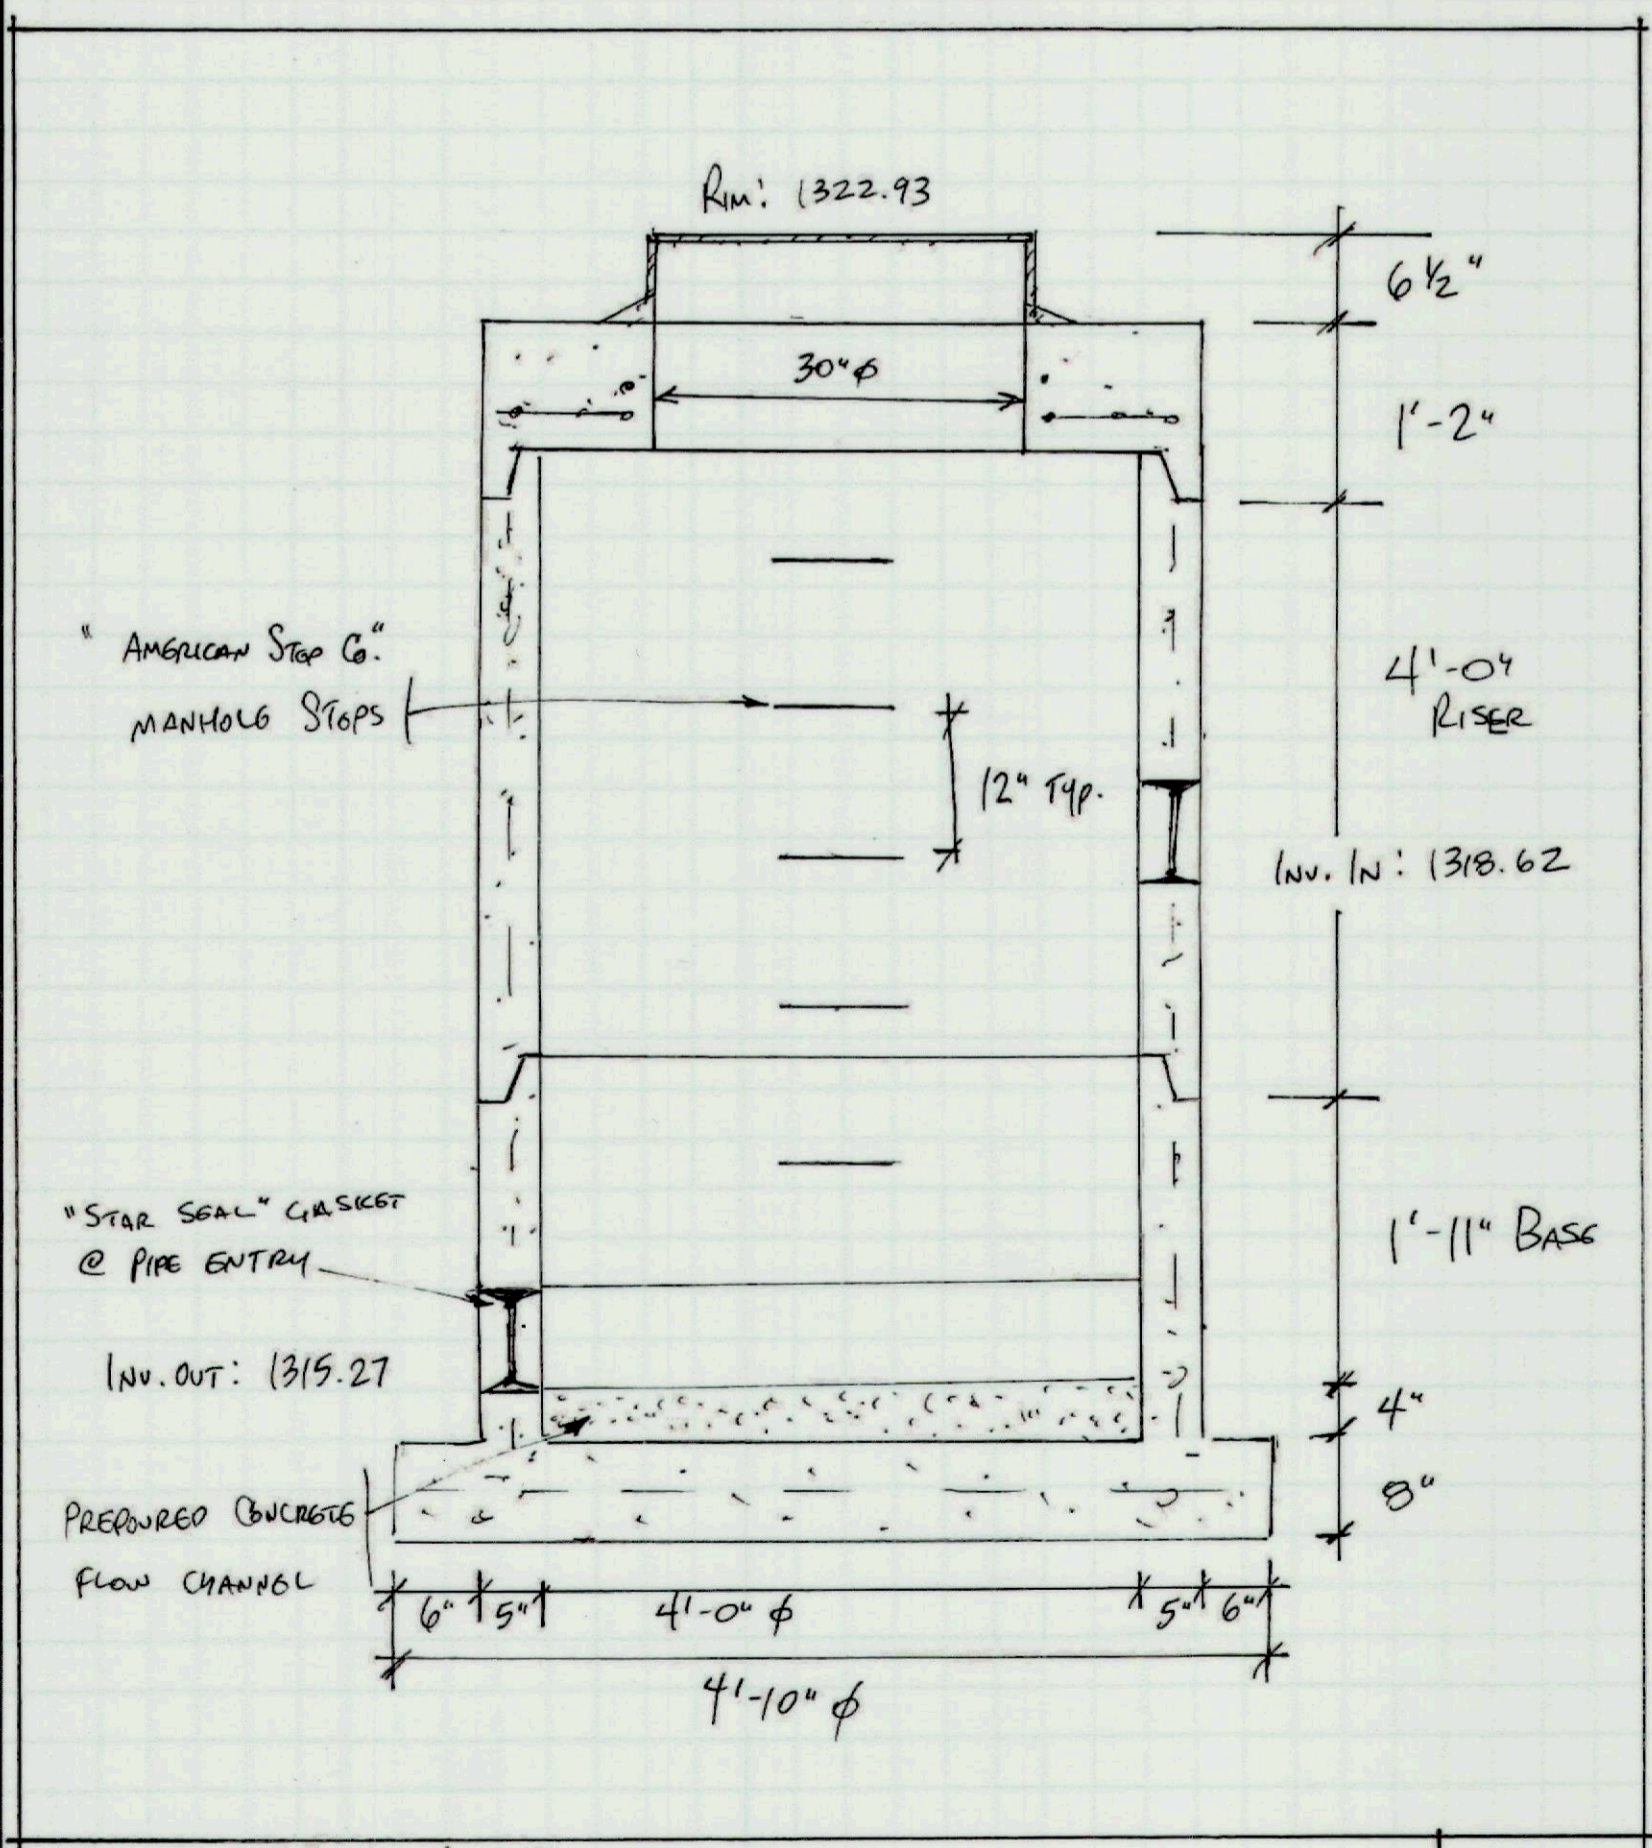 RIM: 1322.93
6 1/2"
30"ϕ
1'-2"
"AMERICAN STEP CO."
MANHOLE STEPS
4'-0"
RISER
12" TYP.
INV. IN: 1318.62
"STAR SEAL" GASKET
@ PIPE ENTRY
1'-11" BASE
INV. OUT: 1315.27
4"
8"
PREPOURED CONCRETE
FLOW CHANNEL
6" 5" 4'-0" ϕ 5" 6"
4'-10" ϕ